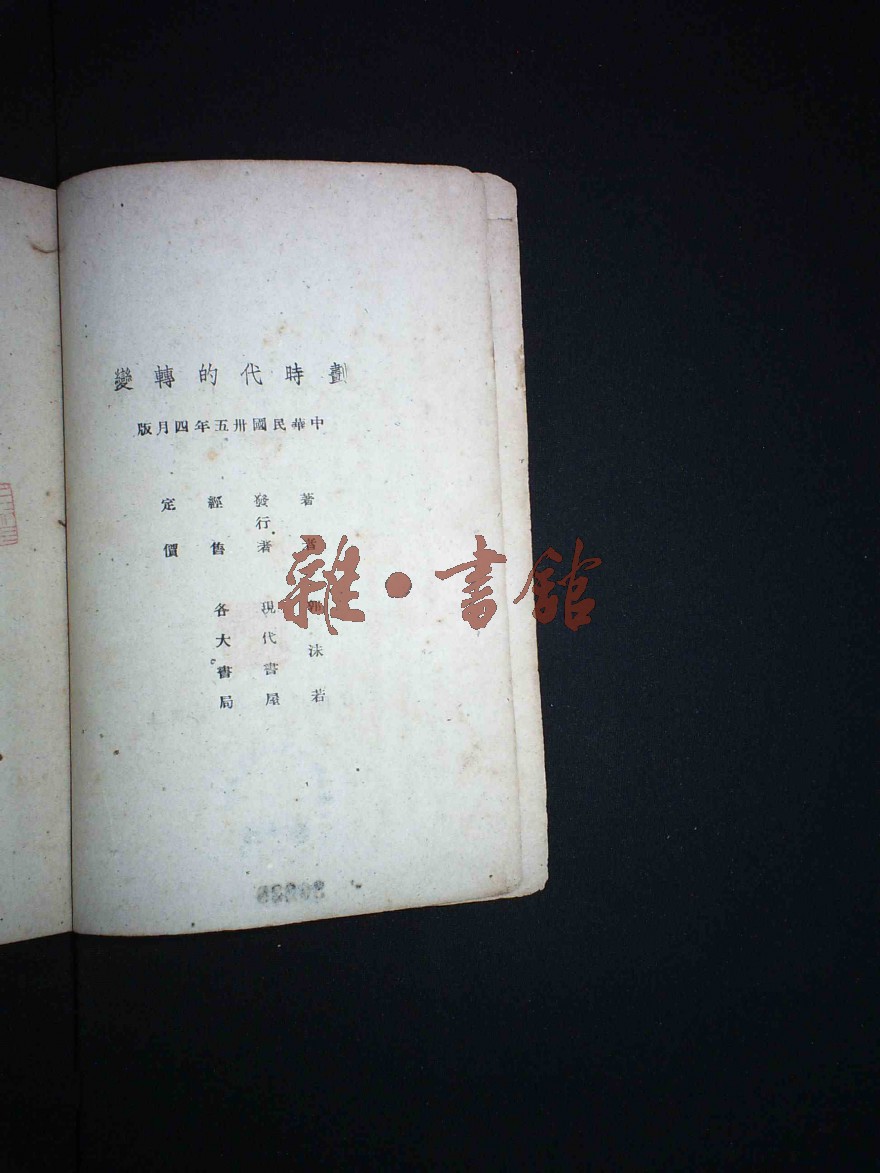 劃時代的轉變
中華民國卅五年四月版
著者 郭沫若
發行者 現代書屋
經售 各大書局
定價
雜·書館